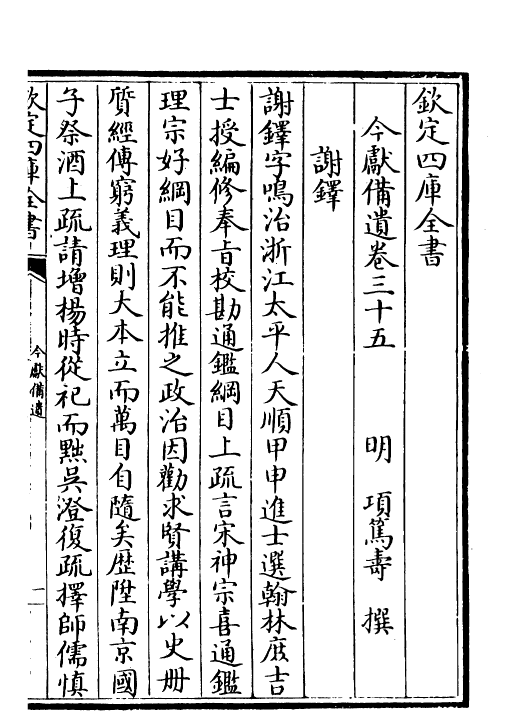 欽定四庫全書
今獻備遺卷三十五 明 項篤壽 撰
謝鐸
謝鐸字鳴治浙江太平人天順甲申進士選翰林庶吉
士授編修奉旨校勘通鑑綱目上疏言宋神宗喜通鑑
理宗好綱目而不能推之政治因勸求賢講學以史册
質經傳窮義理則大本立而萬目自隨矣歴陞南京國
子祭酒上疏請增楊時從祀而黜吳澄復疏擇師儒慎
欽定四庫全書
今獻備遺